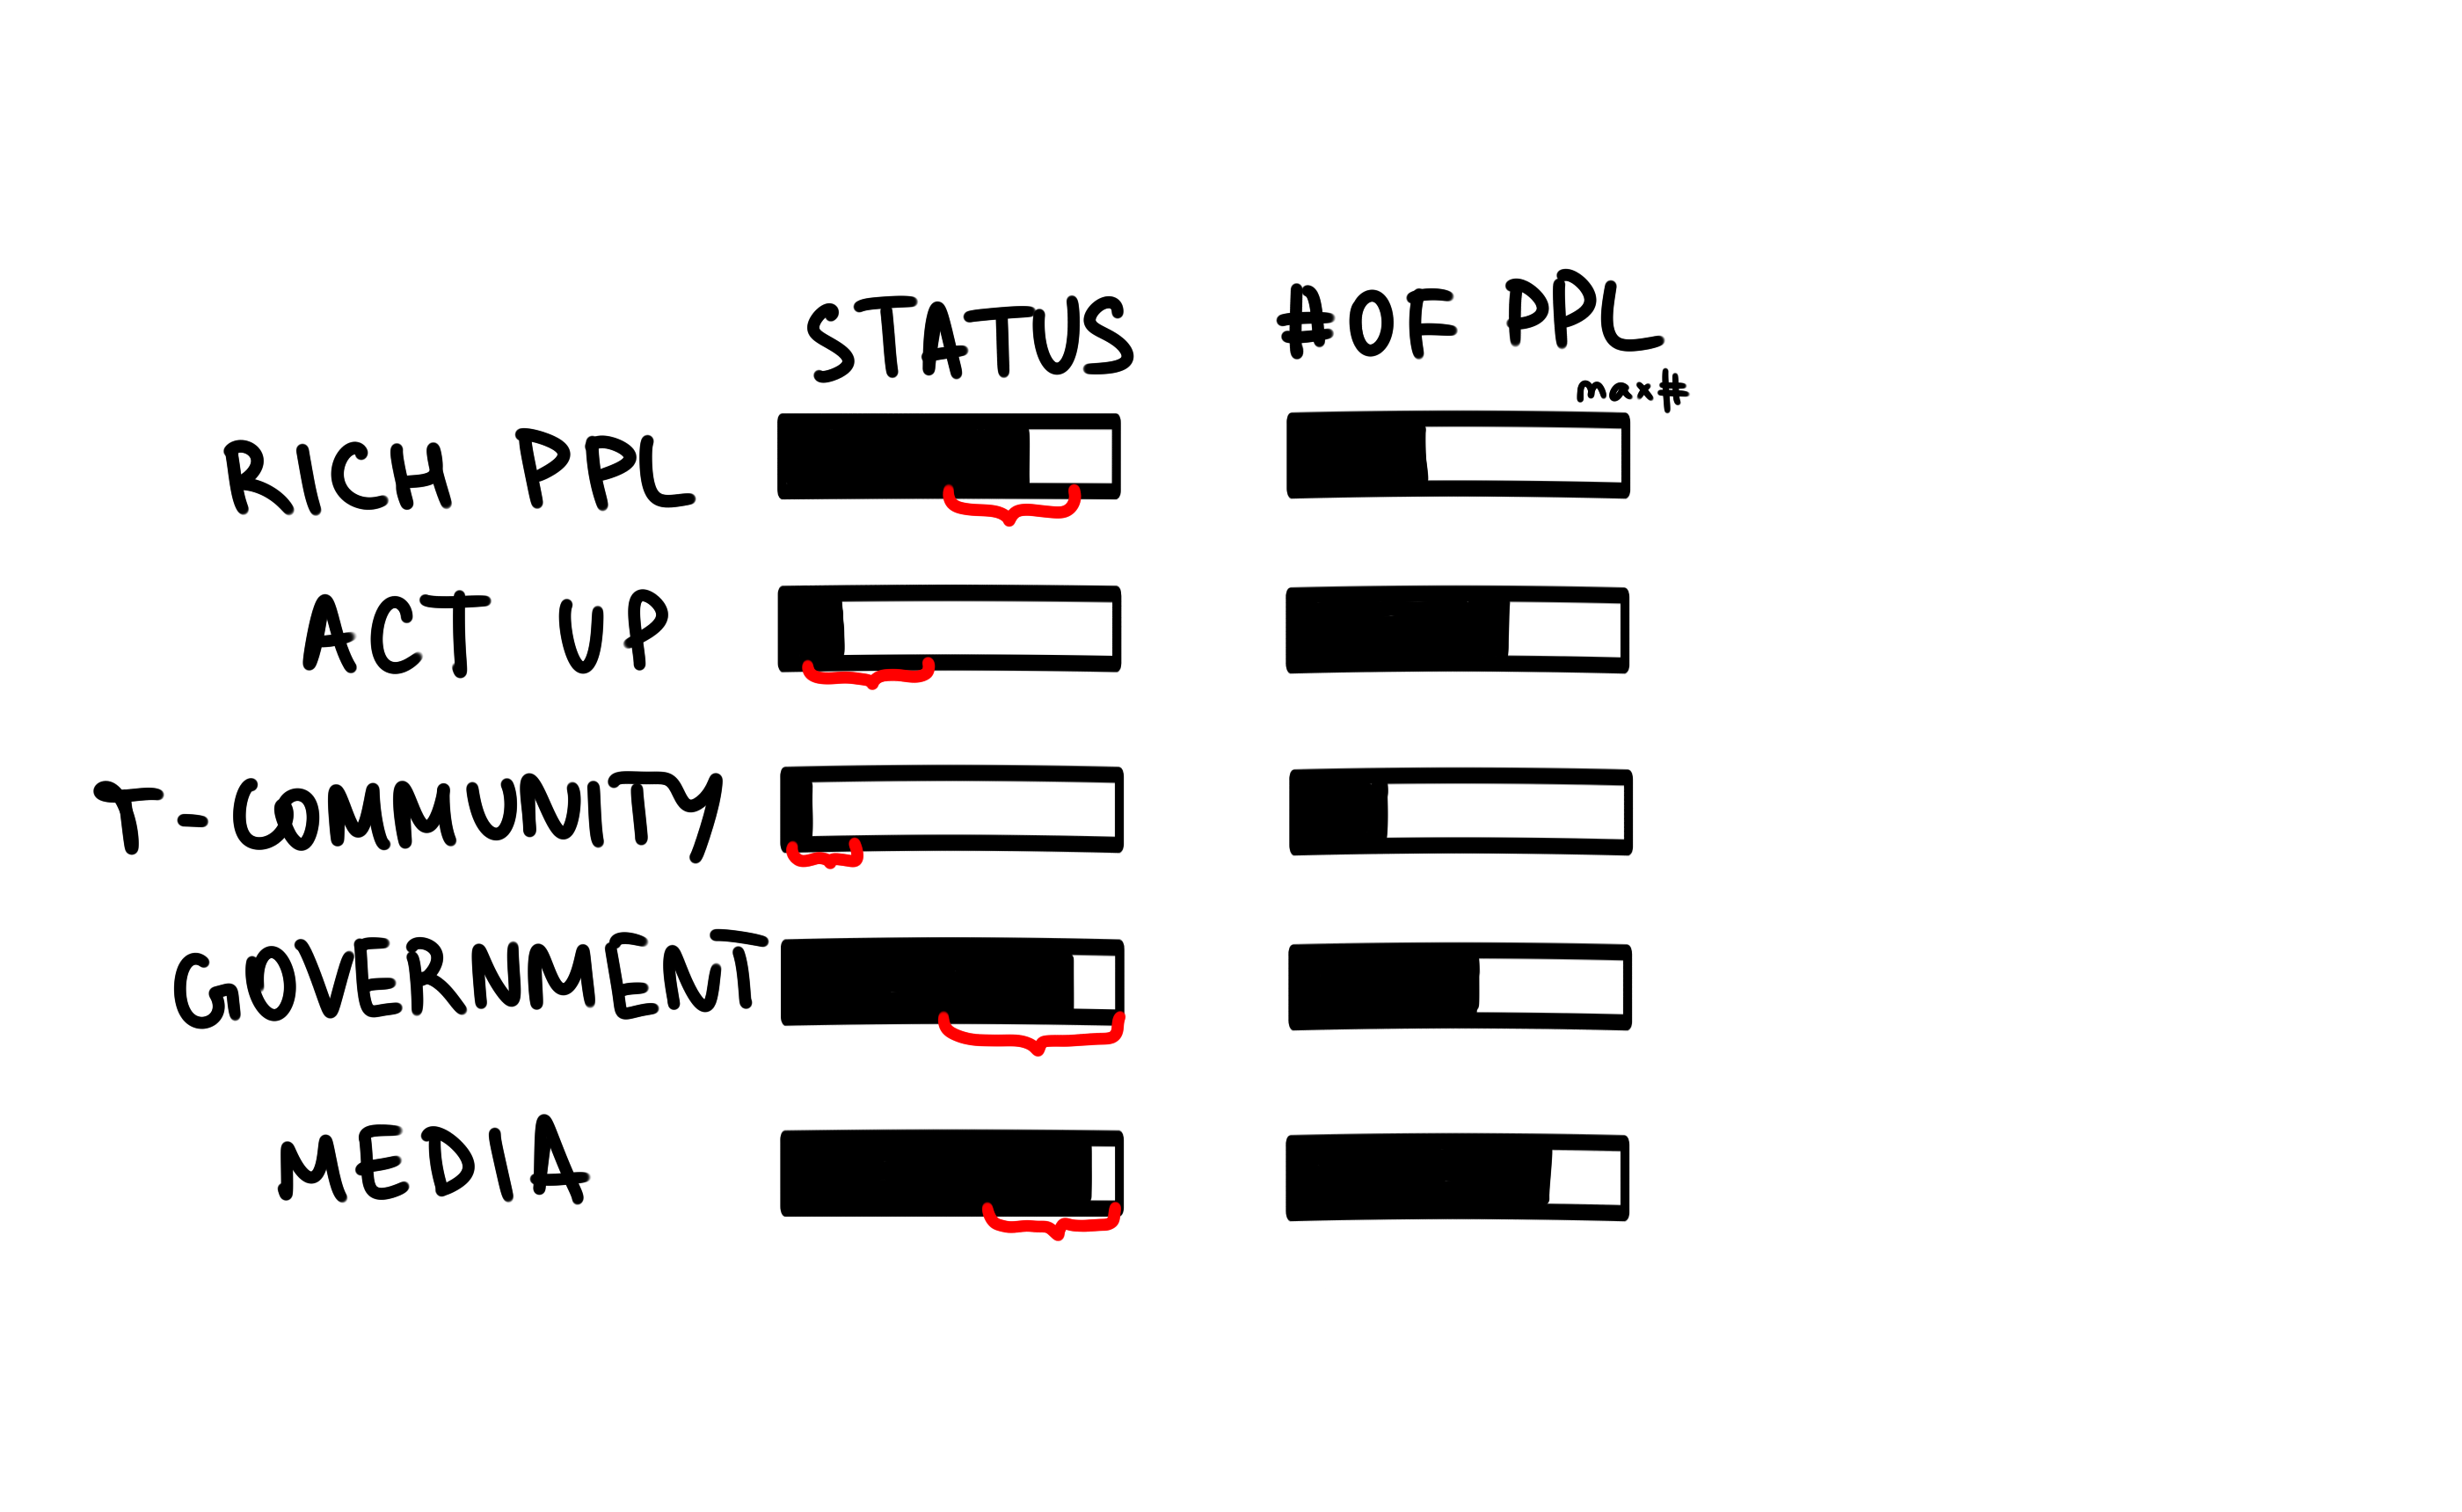 STATUS # OF PPL
max#
RICH PPL
ACT UP
T-COMMUNITY
GOVERNMENT
MEDIA